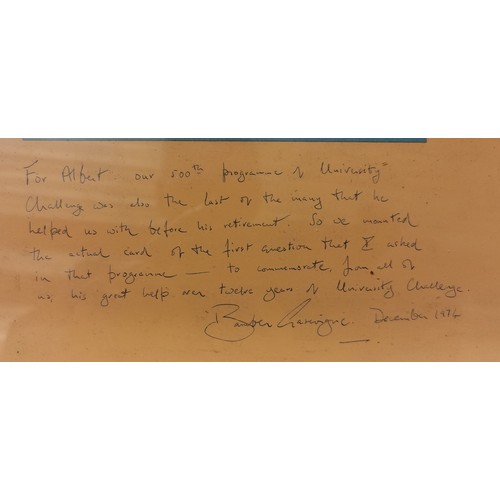 For Albert our 500th programme of University
Challenge was also the last of the many that he
helped us with before his retirement. So we mounted
the actual card of the first question that I asked
in that programme — to commemorate, from all of
us, his great help over twelve years of University Challenge.
Bamber Gascoigne. December 1974